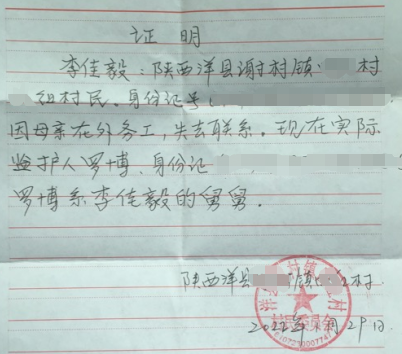 证 明
李佳毅：陕西洋县谢村镇 村
组村民、身份证号
因母亲在外务工，失去联系。现在实际
监护人罗博、身份证
罗博系李佳毅的舅舅。
陕西洋县 镇 村
2022年 月29日